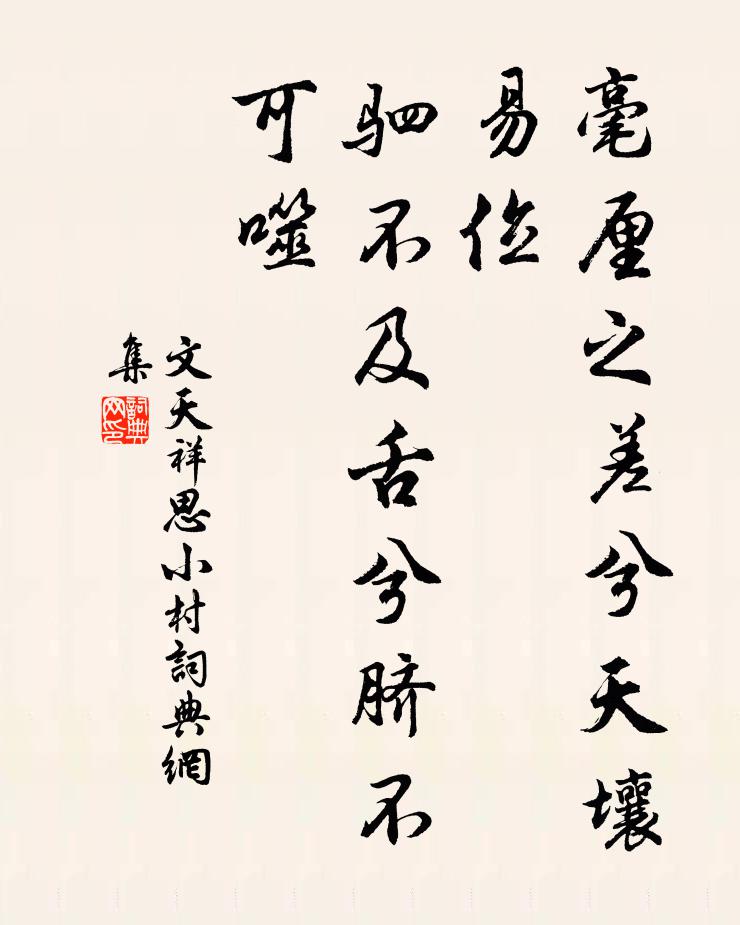 毫厘之差兮天壤
易位
驷不及舌兮脐不
可噬
文天祥思小村詞典網
集
詞典网印